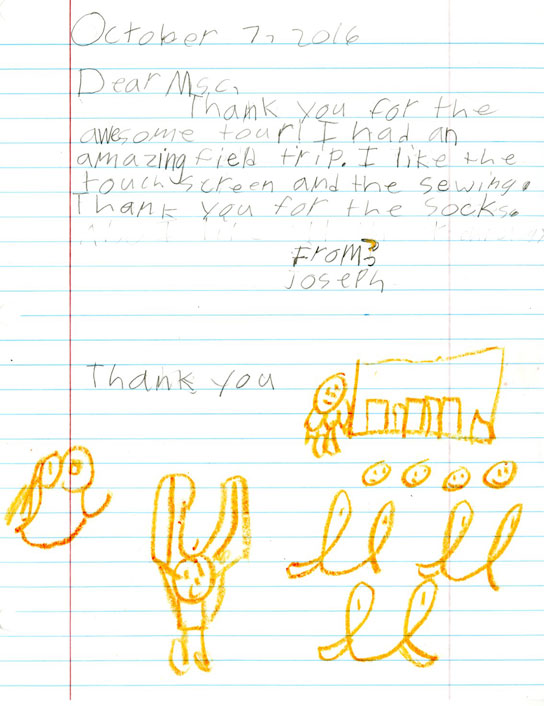 October 7, 2016
Dear Ms.c,
Thank you for the
awesome tour! I had an
amazing field trip. I like the
touch screen and the sewing.
Thank you for the socks.
From:
Joseph
Thank you